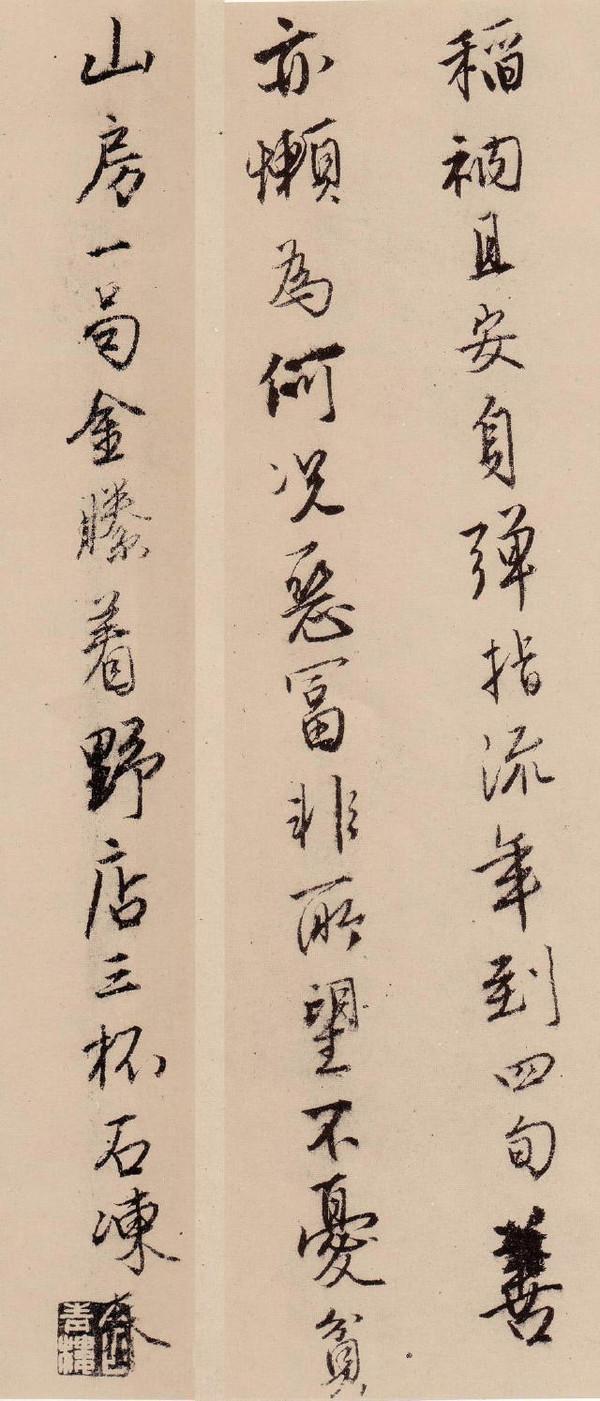 稲衲且安身弹指流年到四旬善
亦懶為何况惡富非所望不憂貧
山房一局金縢着野店三杯石凍春